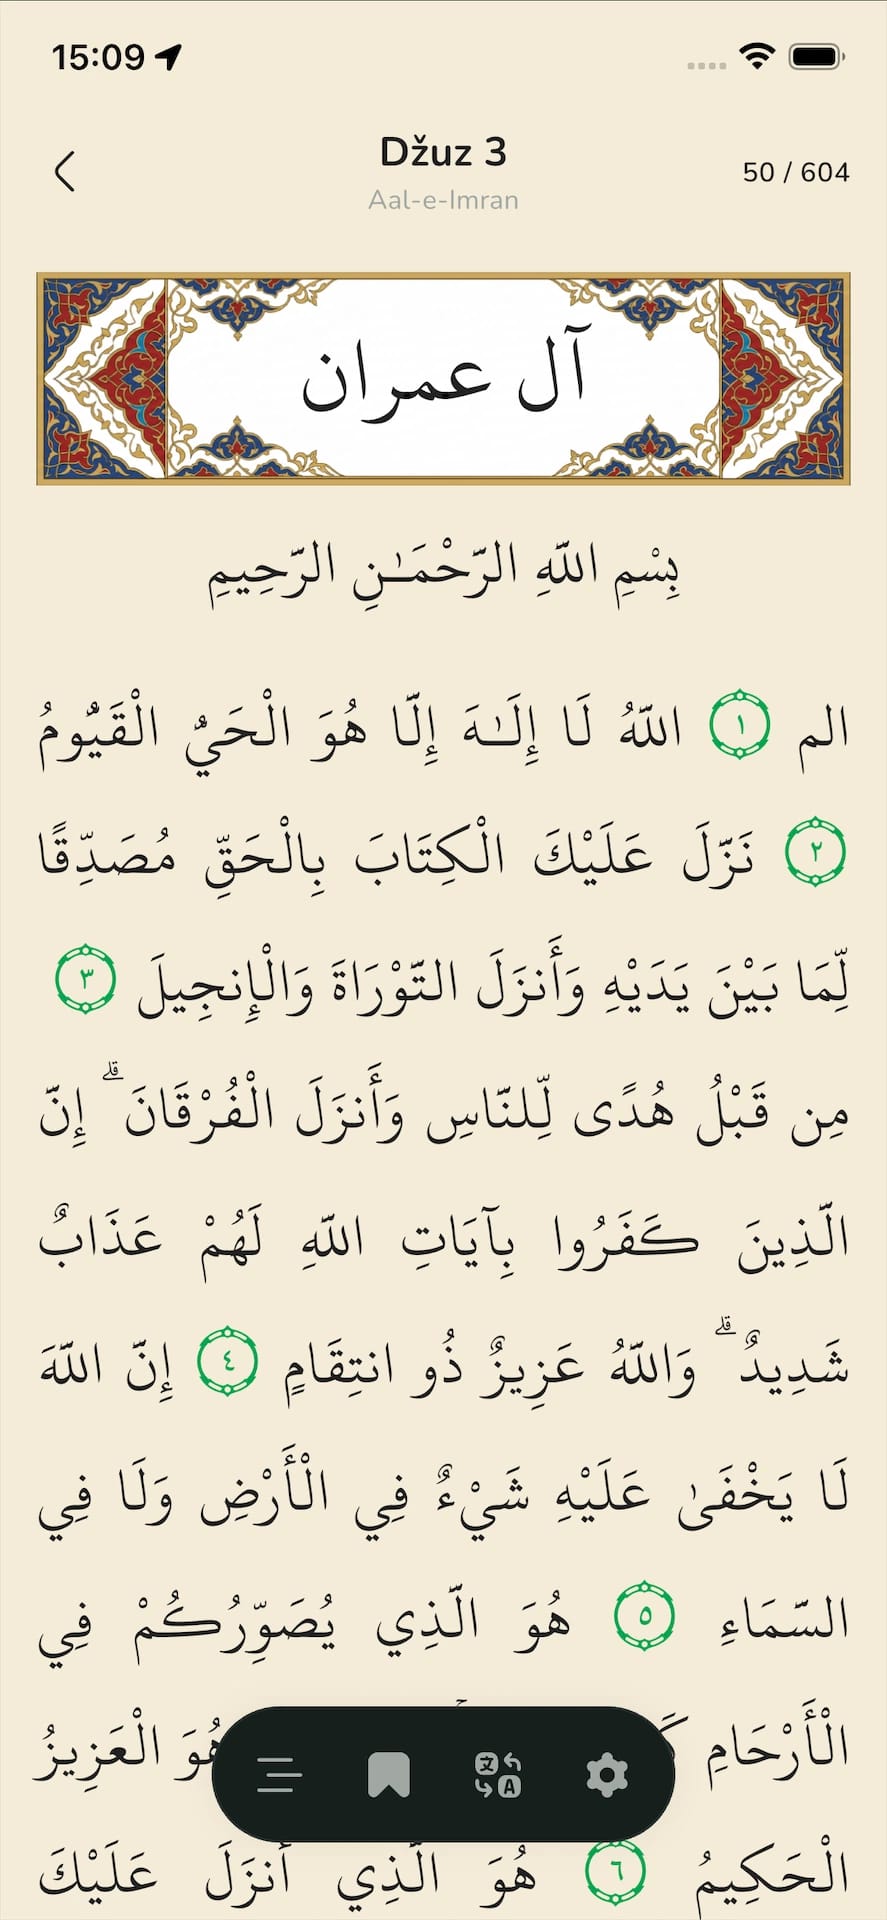 15:09
Džuz 3
50 / 604
Aal-e-Imran
آل عمران
بِسْمِ اللَّهِ الرَّحْمَـٰنِ الرَّحِيمِ
الم ١ اللَّهُ لَا إِلَـٰهَ إِلَّا هُوَ الْحَيُّ الْقَيُّومُ
٢ نَزَّلَ عَلَيْكَ الْكِتَابَ بِالْحَقِّ مُصَدِّقًا
لِّمَا بَيْنَ يَدَيْهِ وَأَنزَلَ التَّوْرَاةَ وَالْإِنجِيلَ ٣
مِن قَبْلُ هُدًى لِّلنَّاسِ وَأَنزَلَ الْفُرْقَانَ ۗ إِنَّ
الَّذِينَ كَفَرُوا بِآيَاتِ اللَّهِ لَهُمْ عَذَابٌ
شَدِيدٌ ۗ وَاللَّهُ عَزِيزٌ ذُو انتِقَامٍ ٤ إِنَّ اللَّهَ
لَا يَخْفَىٰ عَلَيْهِ شَيْءٌ فِي الْأَرْضِ وَلَا فِي
السَّمَاءِ ٥ هُوَ الَّذِي يُصَوِّرُكُمْ فِي
الْأَرْحَامِ هُوَ الْعَزِيزُ
الْحَكِيمُ ٦ هُوَ الَّذِي أَنزَلَ عَلَيْكَ